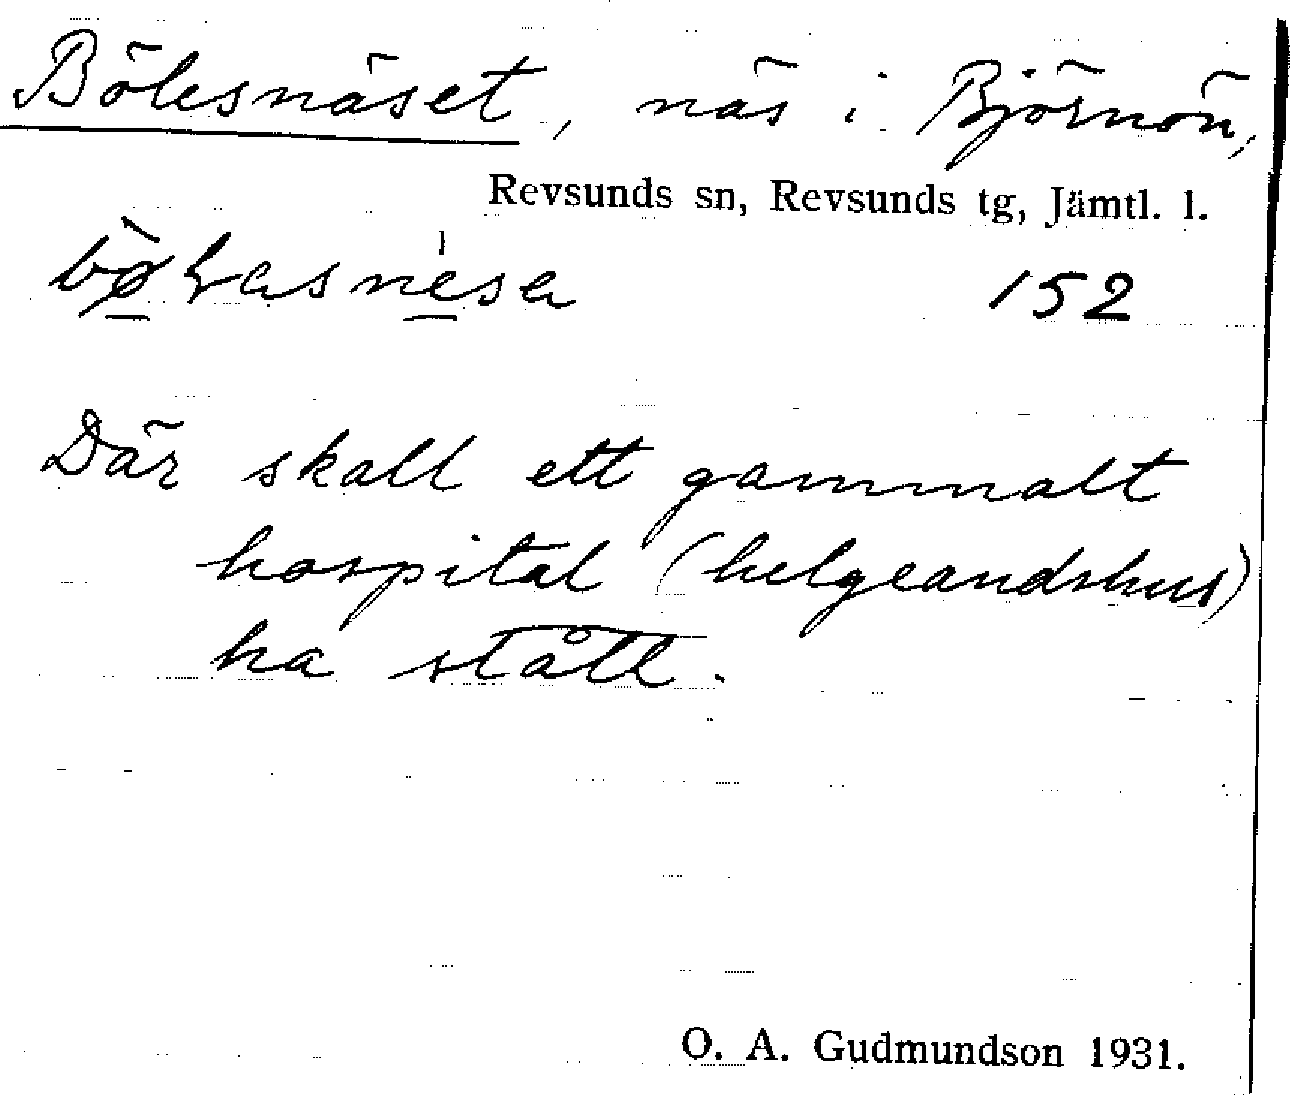 Bölesnäset, näs i Björnön,
Revsunds sn, Revsunds tg, Jämtl. l.
152
Där skall ett gammalt
hospital (helgeandshus)
ha stått.
O. A. Gudmundson 1931.